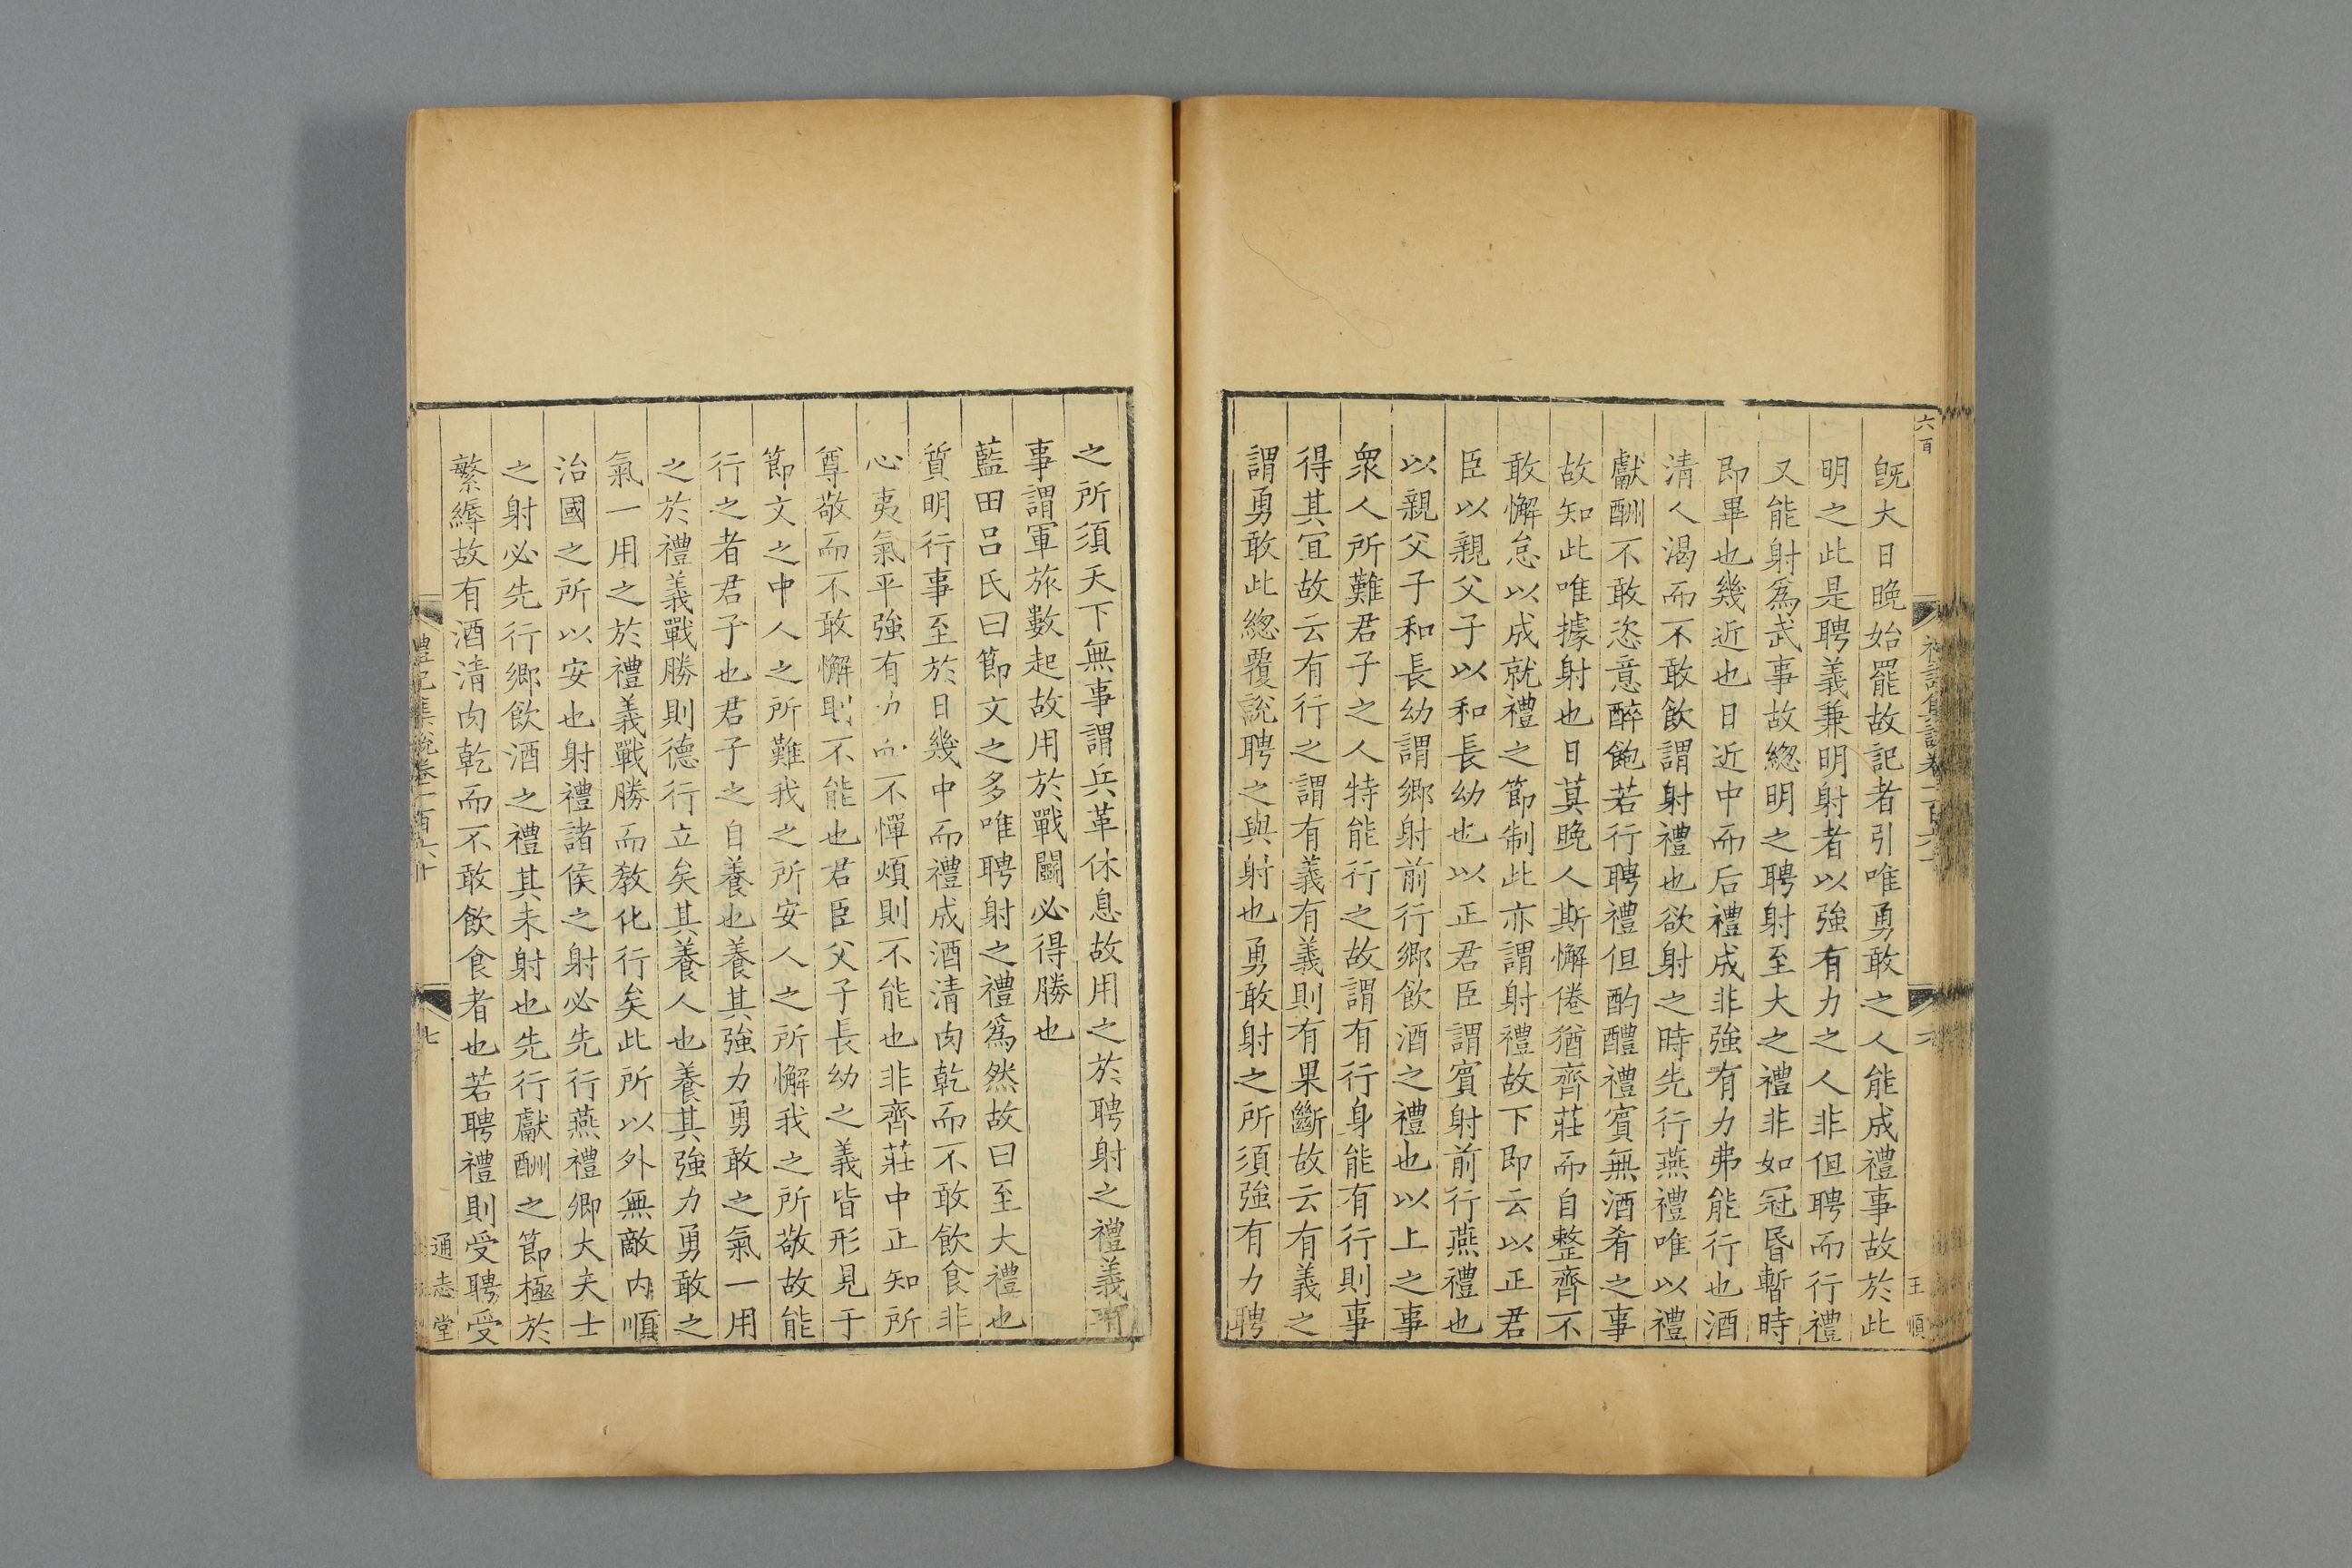 六百
禮記集說卷一百六十
六
王順
旣大日晩始罷故記者引唯勇敢之人能成禮事故於此
明之此是聘義兼明射者以強有力之人非但聘而行禮
又能射爲武事故緫明之聘射至大之禮非如冠昬暫時
即畢也幾近也日近中而后禮成非強有力弗能行也酒
清人渴而不敢飮謂射禮也欲射之時先行燕禮唯以禮
獻酬不敢恣意醉飽若行聘禮但酌醴禮賔無酒肴之事
故知此唯據射也日莫晩人斯懈倦猶齊莊而自整齊不
敢懈怠以成就禮之節制此亦謂射禮故下即云以正君
臣以親父子以和長幼也以正君臣謂賔射前行燕禮也
以親父子和長幼謂鄉射前行鄉飮酒之禮也以上之事
衆人所難君子之人特能行之故謂有行身能有行則事
得其宜故云有行之謂有義有義則有果斷故云有義之
謂勇敢此緫覆說聘之與射也勇敢射之所須強有力聘
之所須天下無事謂兵革休息故用之於聘射之禮義有
事謂軍旅數起故用於戰鬭必得勝也
藍田呂氏曰節文之多唯聘射之禮爲然故曰至大禮也
質明行事至於日幾中而禮成酒清肉乾而不敢飮食非
心夷氣平強有力而不憚煩則不能也非齊莊中正知所
尊敬而不敢懈則不能也君臣父子長幼之義皆形見于
節文之中人之所難我之所安人之所懈我之所敬故能
行之者君子也君子之自養也養其強力勇敢之氣一用
之於禮義戰勝則德行立矣其養人也養其強力勇敢之
氣一用之於禮義戰勝而敎化行矣此所以外無敵內順
治國之所以安也射禮諸侯之射必先行燕禮卿大夫士
之射必先行鄉飮酒之禮其未射也先行獻酬之節極於
繁縟故有酒清肉乾而不敢飮食者也若聘禮則受聘受
禮記集說卷一百六十
七
通志堂